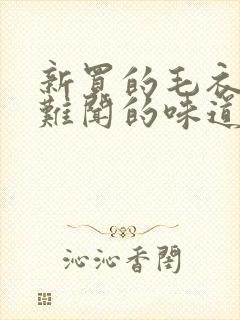 新買的毛衣
難聞的味道
沁沁香閣